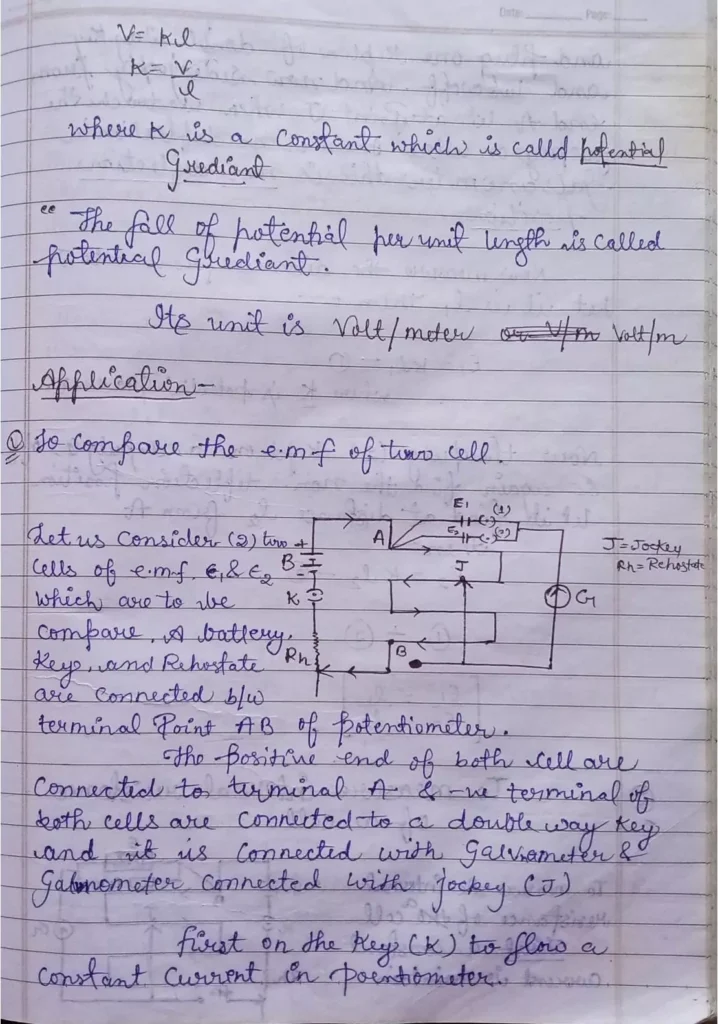 Date Page
V = Kl
K = V/l
where K is a constant which is calld potential
Grediant
"The fall of potential per unit length is called
potential Grediant.
Its unit is Volt/meter or V/m Volt/m
Application -
① To compare the e.m.f of two cell.
Let us consider (2) two
cells of e.m.f. ε₁ & ε₂
which are to be
compare. A battery,
Key, and Rehostate
are connected b/w
terminal Point AB of potentiometer.
E₁ (1)
E₂ (2)
+ B -
K
Rh
A
J
B
G
J = Jockey
Rh = Rehostate
The positive end of both cell are
connected to terminal A & -ve terminal of
both cells are connected to a double way Key
and it is connected with galvnometer &
Galvnometer connected with jockey (J)
first on the Key (K) to flow a
constant current in poentiometer.